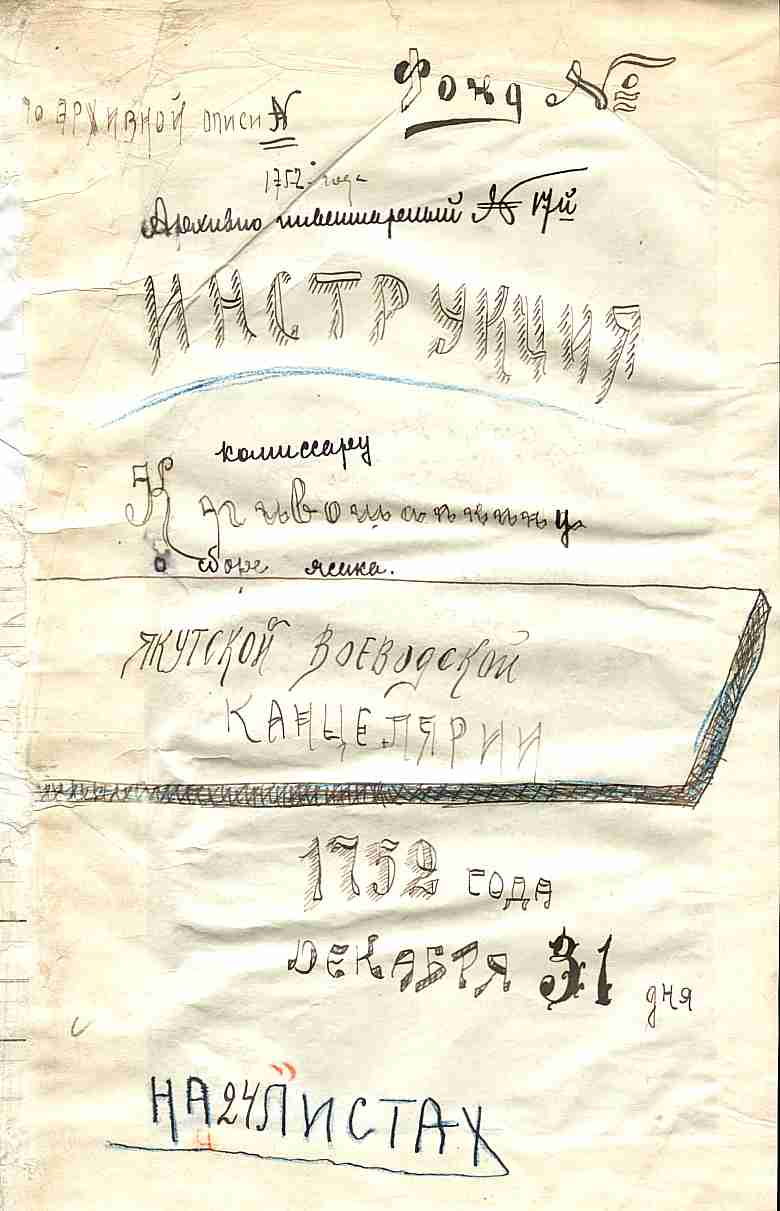 Фонд №
по архивной описи №
1752 года
Архивно инвентарный № 17й
ИНСТРУКЦИЯ
комиссару
Кривошапкину
о сборе ясака.
ЯКУТСКОЙ ВОЕВОДСКОЙ
КАНЦЕЛЯРИИ
1752 ГОДА
ДЕКАБРЯ 31 дня
НА 24 ЛИСТАХ